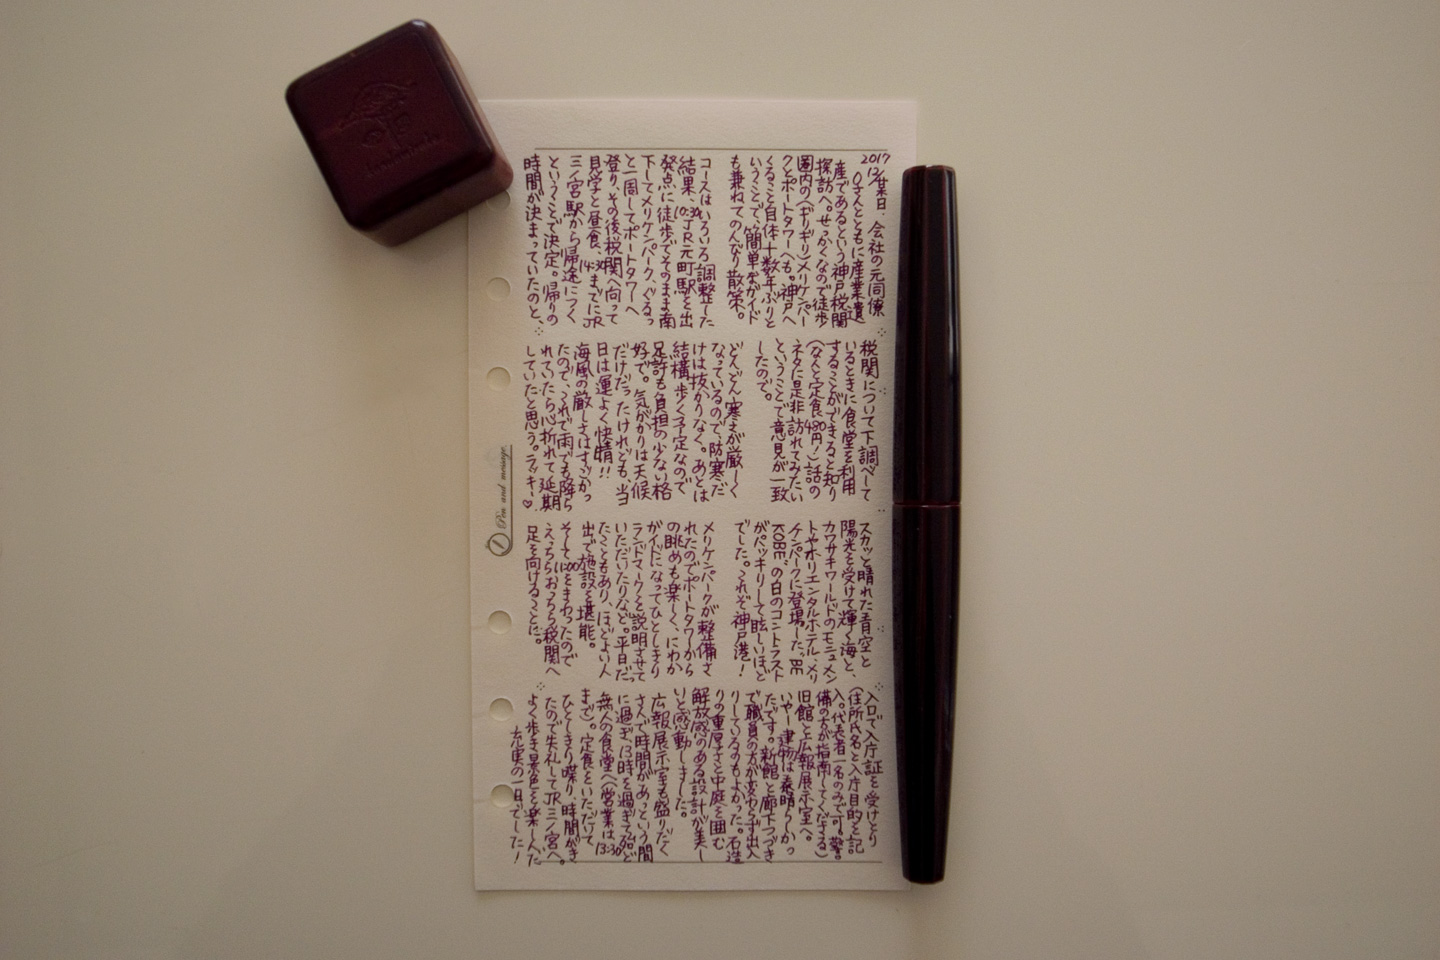 2017
12/某日、会社の元同僚
Oさんとともに産業遺
産であるという神戸税関
探訪へ。せっかくなので徒歩
圏内の(ギリギリ)メリケンパー
クとポートタワーへも。神戸へ
くること自体十数年ぶりと
いうことで、簡単なガイド
も兼ねてのんびり散策。
コースはいろいろ調整した
結果、10:30JR元町駅を出
発点に徒歩でそのまま南
下してメリケンパーク、ぐるっ
と一周してポートタワーへ
登り、その後税関へ向って
見学と昼食、14:30までにJR
三ノ宮駅から帰途につく
ということで決定。帰りの
時間が決まっていたのと、
税関について下調べして
いるときに食堂を利用
することができると知り
(なんと定食480円!)話の
ネタに是非訪れてみたい
ということで意見が一致
したので。
どんどん寒さが厳しく
なっているので、防寒だ
けは抜かりなく。あとは
結構歩く予定なので
足許も負担の少ない格
好で。気がかりは天候
だけだったけれども、当
日は運よく快晴!!
海風の厳しさはすごかっ
たので、これで雨でも降ら
れていたら心折れて延期
していたと思う。ラッキー♡
スカッと晴れた青空と
陽光を受けて輝く海と、
カワサキワールドのモニュメン
トやオリエンタルホテル、メリ
ケンパークに登場したっBE
KOBEの白のコントラスト
がバッキリして眩しいほど
でした。これぞ神戸港!
メリケンパークが整備さ
れたのでポートタワーから
の眺めも楽しく、にわか
ガイドになってひとしきり
ランドマークを説明させて
いただいたりなど。平日だっ
たこともあり、ほどよい人
出で施設を堪能。
そして12:00をまわったので
えっちらおっちら税関へ
足を向けることに。
入口で入庁証を受けとり
(住所氏名と入庁目的を記
入。代表者一名のみで可。警
備の方が指南してくださる)
旧館と広報展示室へ。
いやー建物は素晴らしかっ
たです。新館と廊下つづき
で職員の方が変わらず出入
りしているのもよかった。石造
りの重厚さと中庭を囲む
解放感のある設計が美し
いと感動しました。
広報展示室も盛りだく
さんで時間があっという間
に過ぎ、13時を過ぎて殆ど
無人の食堂へ(営業は13:30
まで)。定食をいただいて
ひとしきり喋り、時間がき
たので失礼してJR三ノ宮へ。
よく歩き景色を楽しんだ
充実の一日でした!
Pen and message.